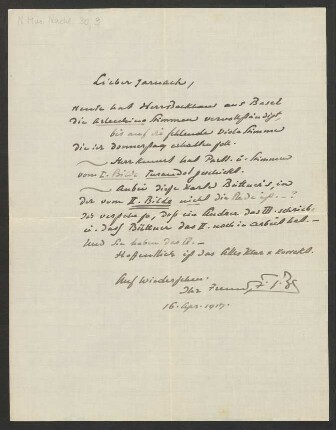 Lieber Jarnach,
Heute hat Herr Backhaus aus Basel
die Arlecchino Stimmen vervollständigt,
bis auf die fehlende Viola Stimme
die ich Donnerstag erhalten soll.
— Herr hat Partt. u. Stimmen
vom I. Bilde Turandot geschickt.
— Anbei diese Karte Büttners, in
der vom II. Bilde nicht die Rede ist — ?
Ich verstehe so, daß ein Andrer das III. schrieb,
u. daß Büttner das II. noch in Arbeit hat. —
Und Sie haben das IV. —
Hoffentlich ist das Alles klar u. korrekt.
Auf Wiedersehen.
Ihr Freund, F. B.
16. Apr. 1917.